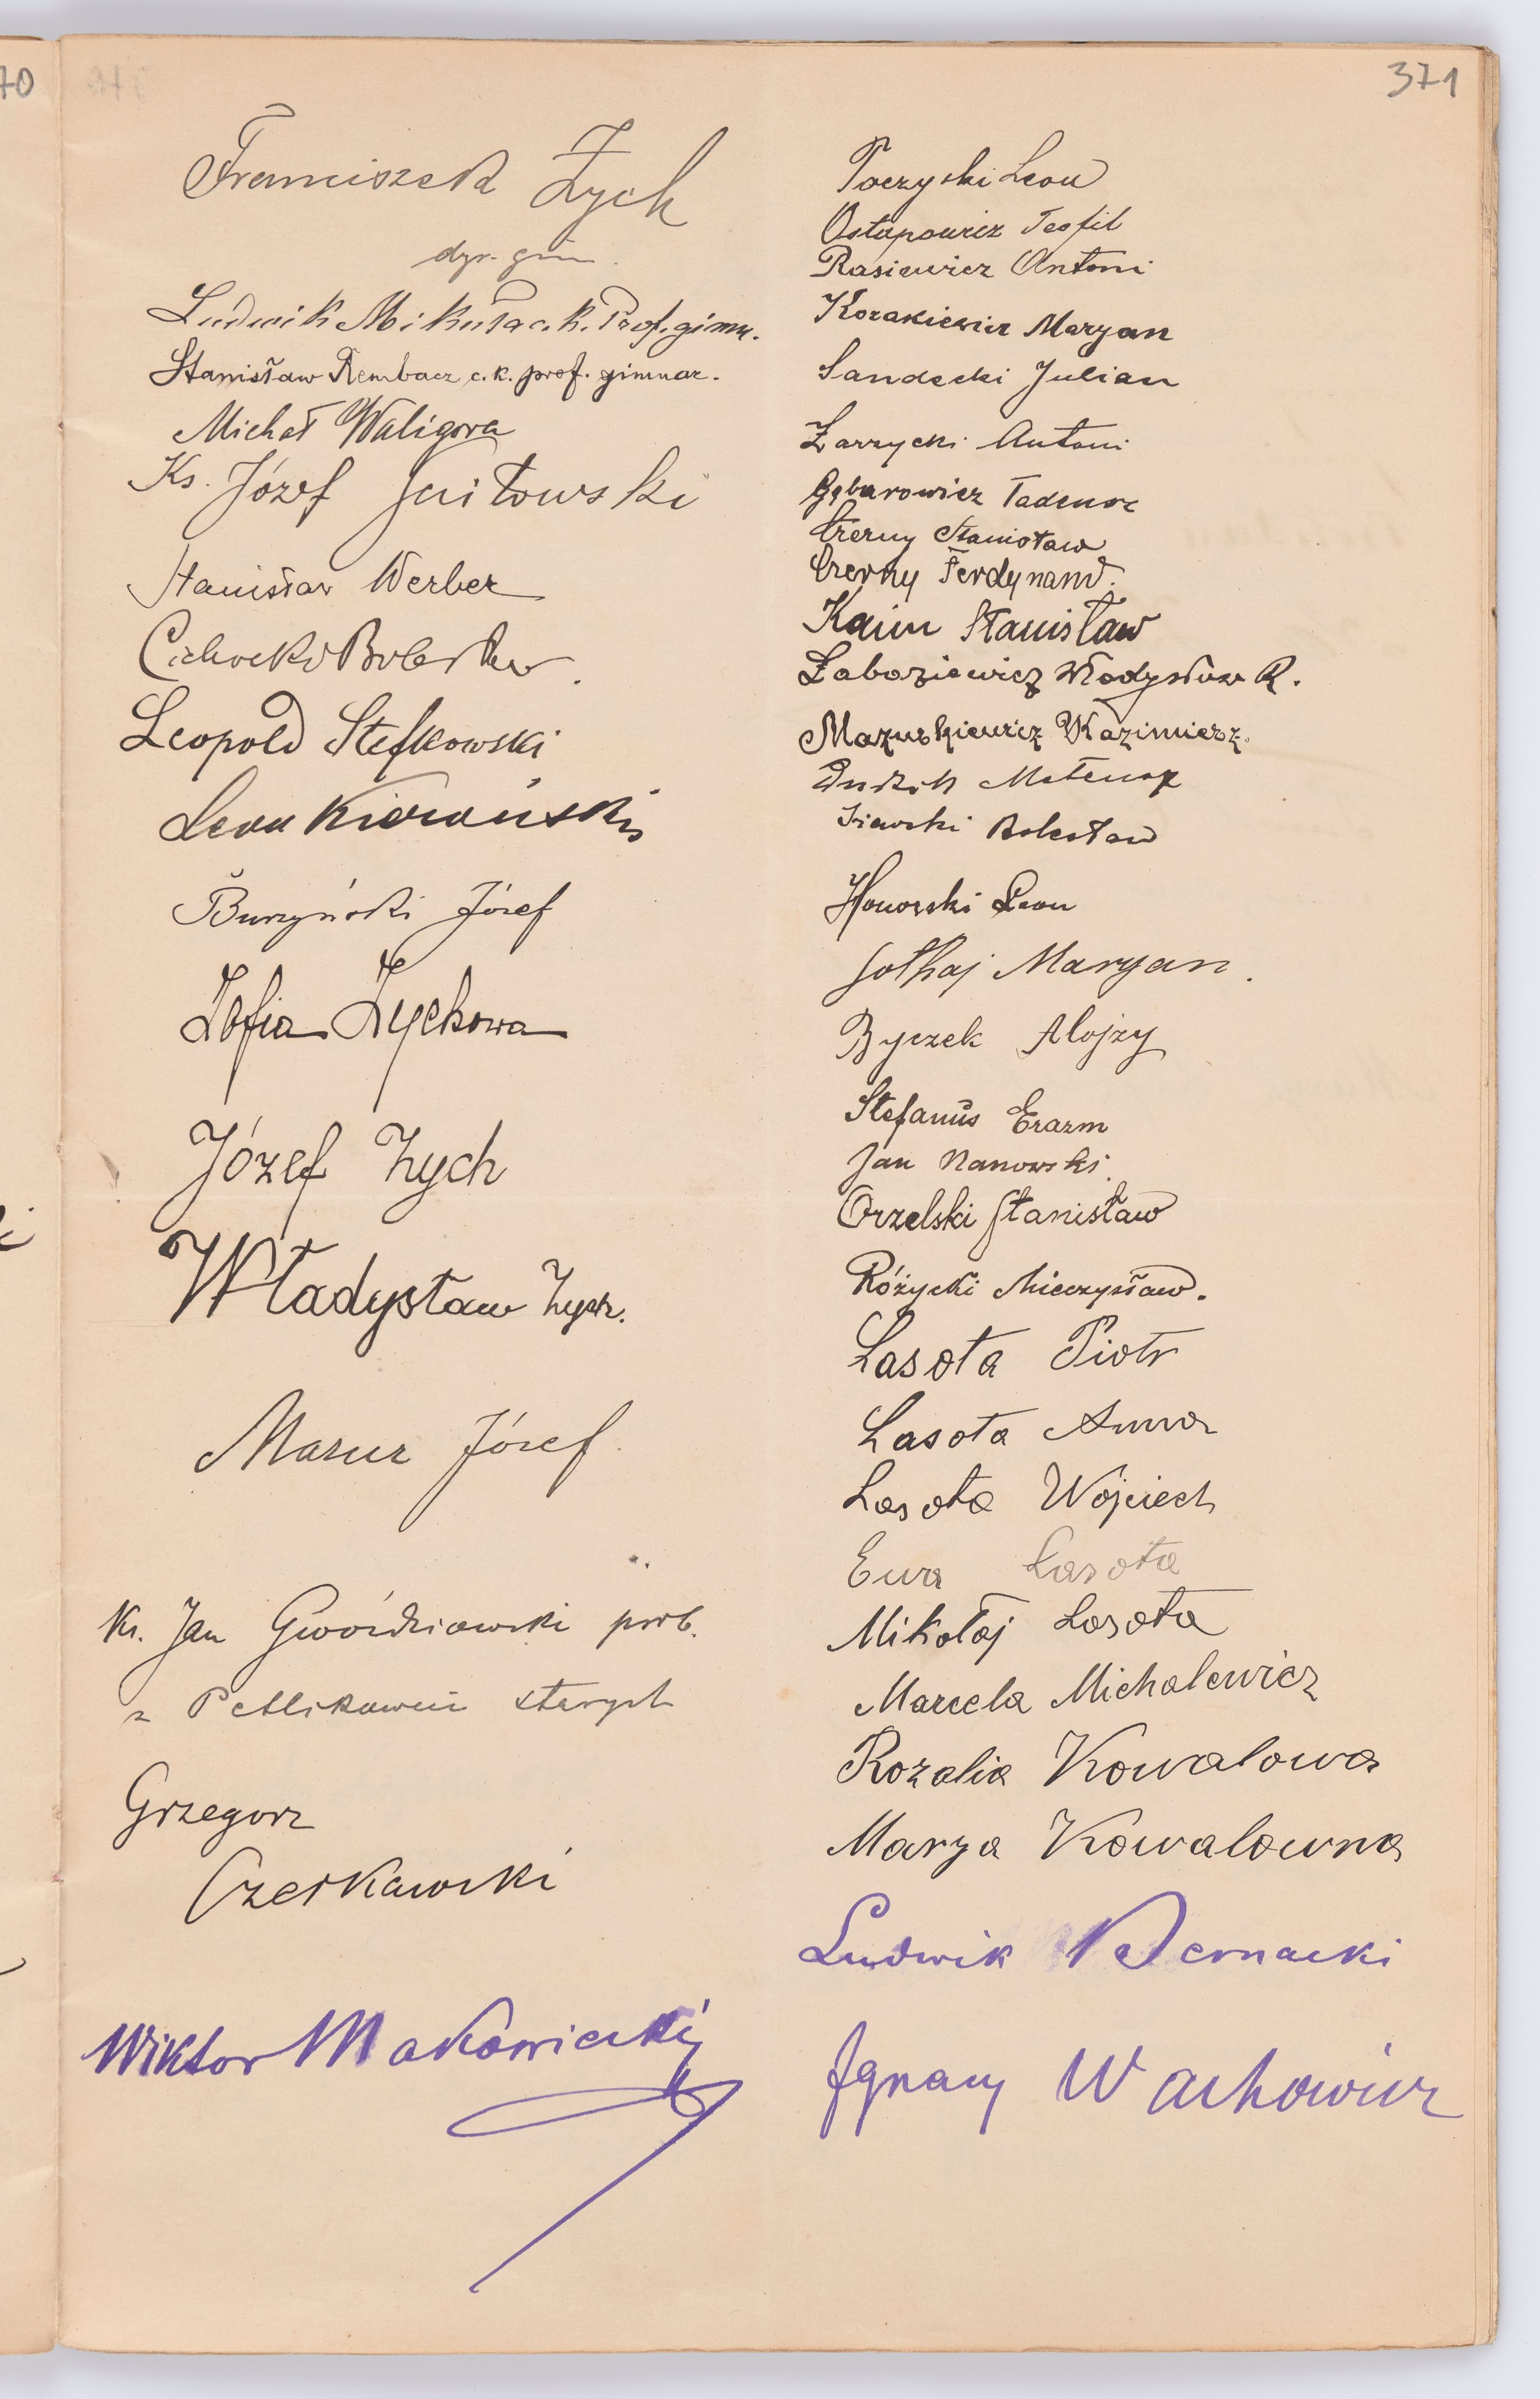 371
70
Franciszek Zych
dyr. gim.
Ludwik Mikuła c. k. Prof. gimn.
Stanisław Rembacz c. k. prof. gimnaz.
Michał Waligora
Ks. Józef
Stanisław Werber
Cichocki Bolesław
Leopold Stefkowski
Leon
Burzyński Józef
Zofia Zychowa
Józef Zych
Władysław Zych.
Mazur Józef
Ks. Jan Gwoździowski prob.
z Petlikowiec starych
Grzegorz
Czerkawski
Wiktor Makowiecki
Leon
Ostapowicz Teofil
Rasiewicz Antoni
Kozakiewicz Maryan
Sandecki Julian
Zarzycki Antoni
Gębarowicz Tadeusz
Czerny Stanisław
Czerny Ferdynand.
Kaim Stanisław
Łaboziewicz Władysław R.
Mazurkiewicz Kazimierz.
Dudzik Mateusz
Bolesław
Honorski Leon
Maryan.
Byczek Alojzy
Stefanus Erazm
Jan Nanowski.
Orzelski Stanisław
Różycki Mieczysław.
Lasota Piotr
Lasota Anna
Lasota Wojciech
Ewa Lasota
Mikołaj Lasota
Marcela Michalewicz
Rozalia Kowalowa
Marya Kowalowna
Ludwik Bernacki
Ignacy Wachowicz